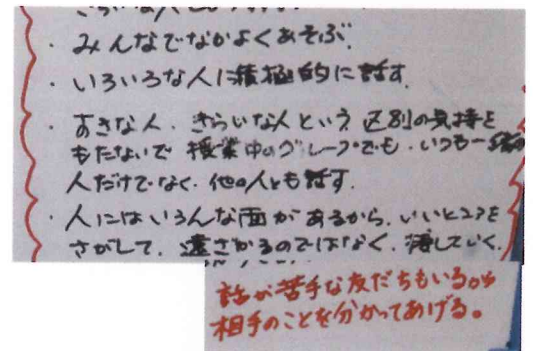 ・みんなでなかよくあそぶ。
・いろいろな人に積極的に話す。
・すきな人、きらいな人という区別の気持を
もたないで 授業中のグループでも、いつも一緒の
人だけでなく、他の人とも話す。
・人にはいろんな面があるから、いいところを
さがして、遠ざかるのではなく、接していく。
話が苦手な友だちもいるから
相手のことを分かってあげる。